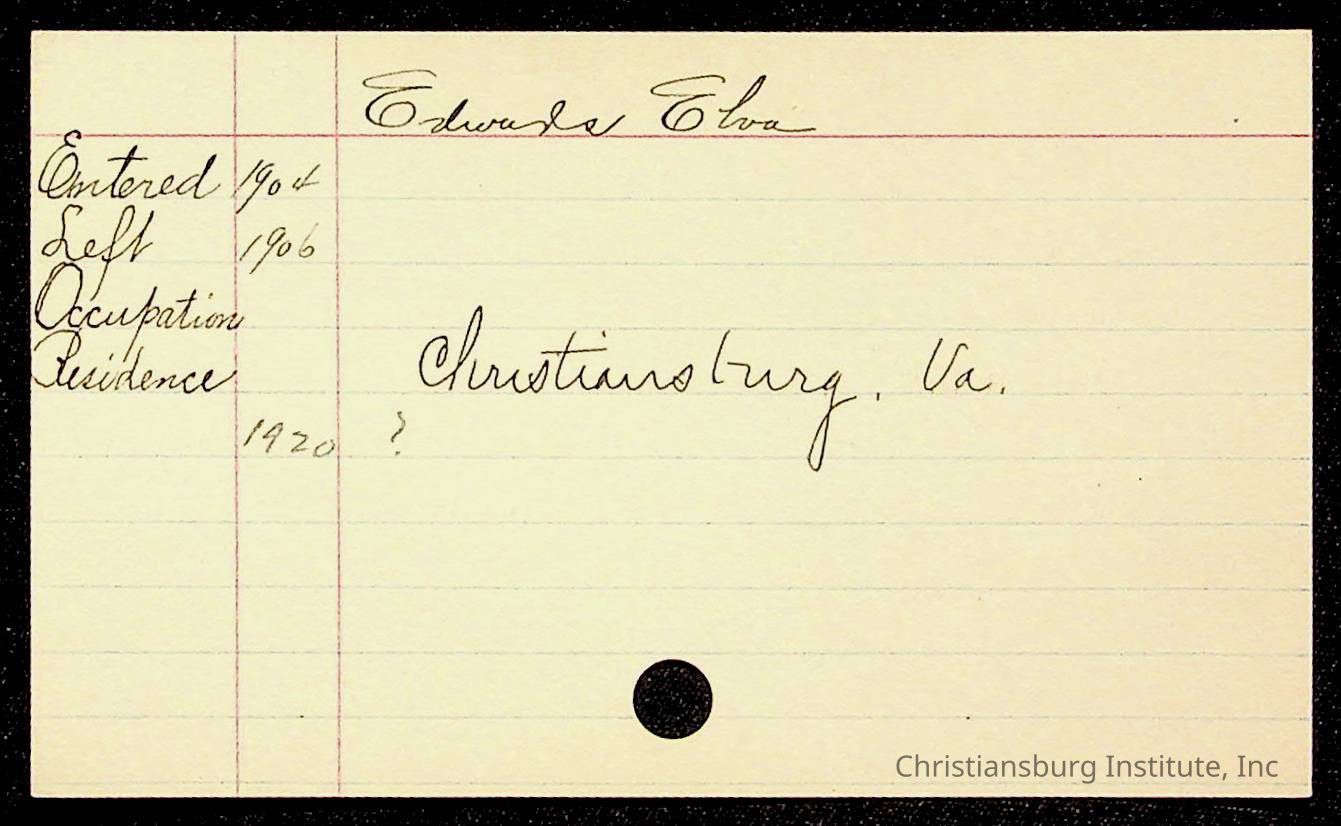 Edwards Elva
Entered 1904
Left 1906
Occupation
Residence Christiansburg, Va.
1920 ?
Christiansburg Institute, Inc